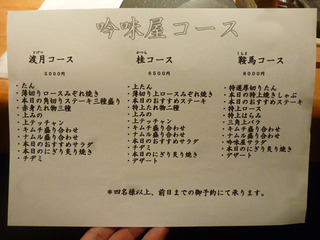 吟味屋コース
渡月コース
5000円
・たん
・薄切りロースみぞれ焼き
・本日の角切りステーキ三種盛り
・赤身たれ物三種
・上みの
・上テッチャン
・キムチ盛り合わせ
・ナムル盛り合わせ
・本日のおすすめサラダ
・本日のにぎり炙り焼き
・チヂミ
かつら
桂コース
6500円
・上たん
・薄切り上ロースみぞれ焼き
・本日のおすすめステーキ
・特上たれ物二種
・上みの
・上テッチャン
・キムチ盛り合わせ
・ナムル盛り合わせ
・本日のおすすめサラダ
・チヂミ
・本日のにぎり炙り焼き
・デザート
くらま
鞍馬コース
8000円
・特選厚切りたん
・本日の特上焼きしゃぶ
・本日のおすすめステーキ
・特上ロース
・特上はらみ
・三角上バラ
・キムチ盛り合わせ
・ナムル盛り合わせ
・吟味屋サラダ
・チヂミ
・本日のにぎり炙り焼き
・デザート
＊四名様以上、前日までの御予約にて承ります。